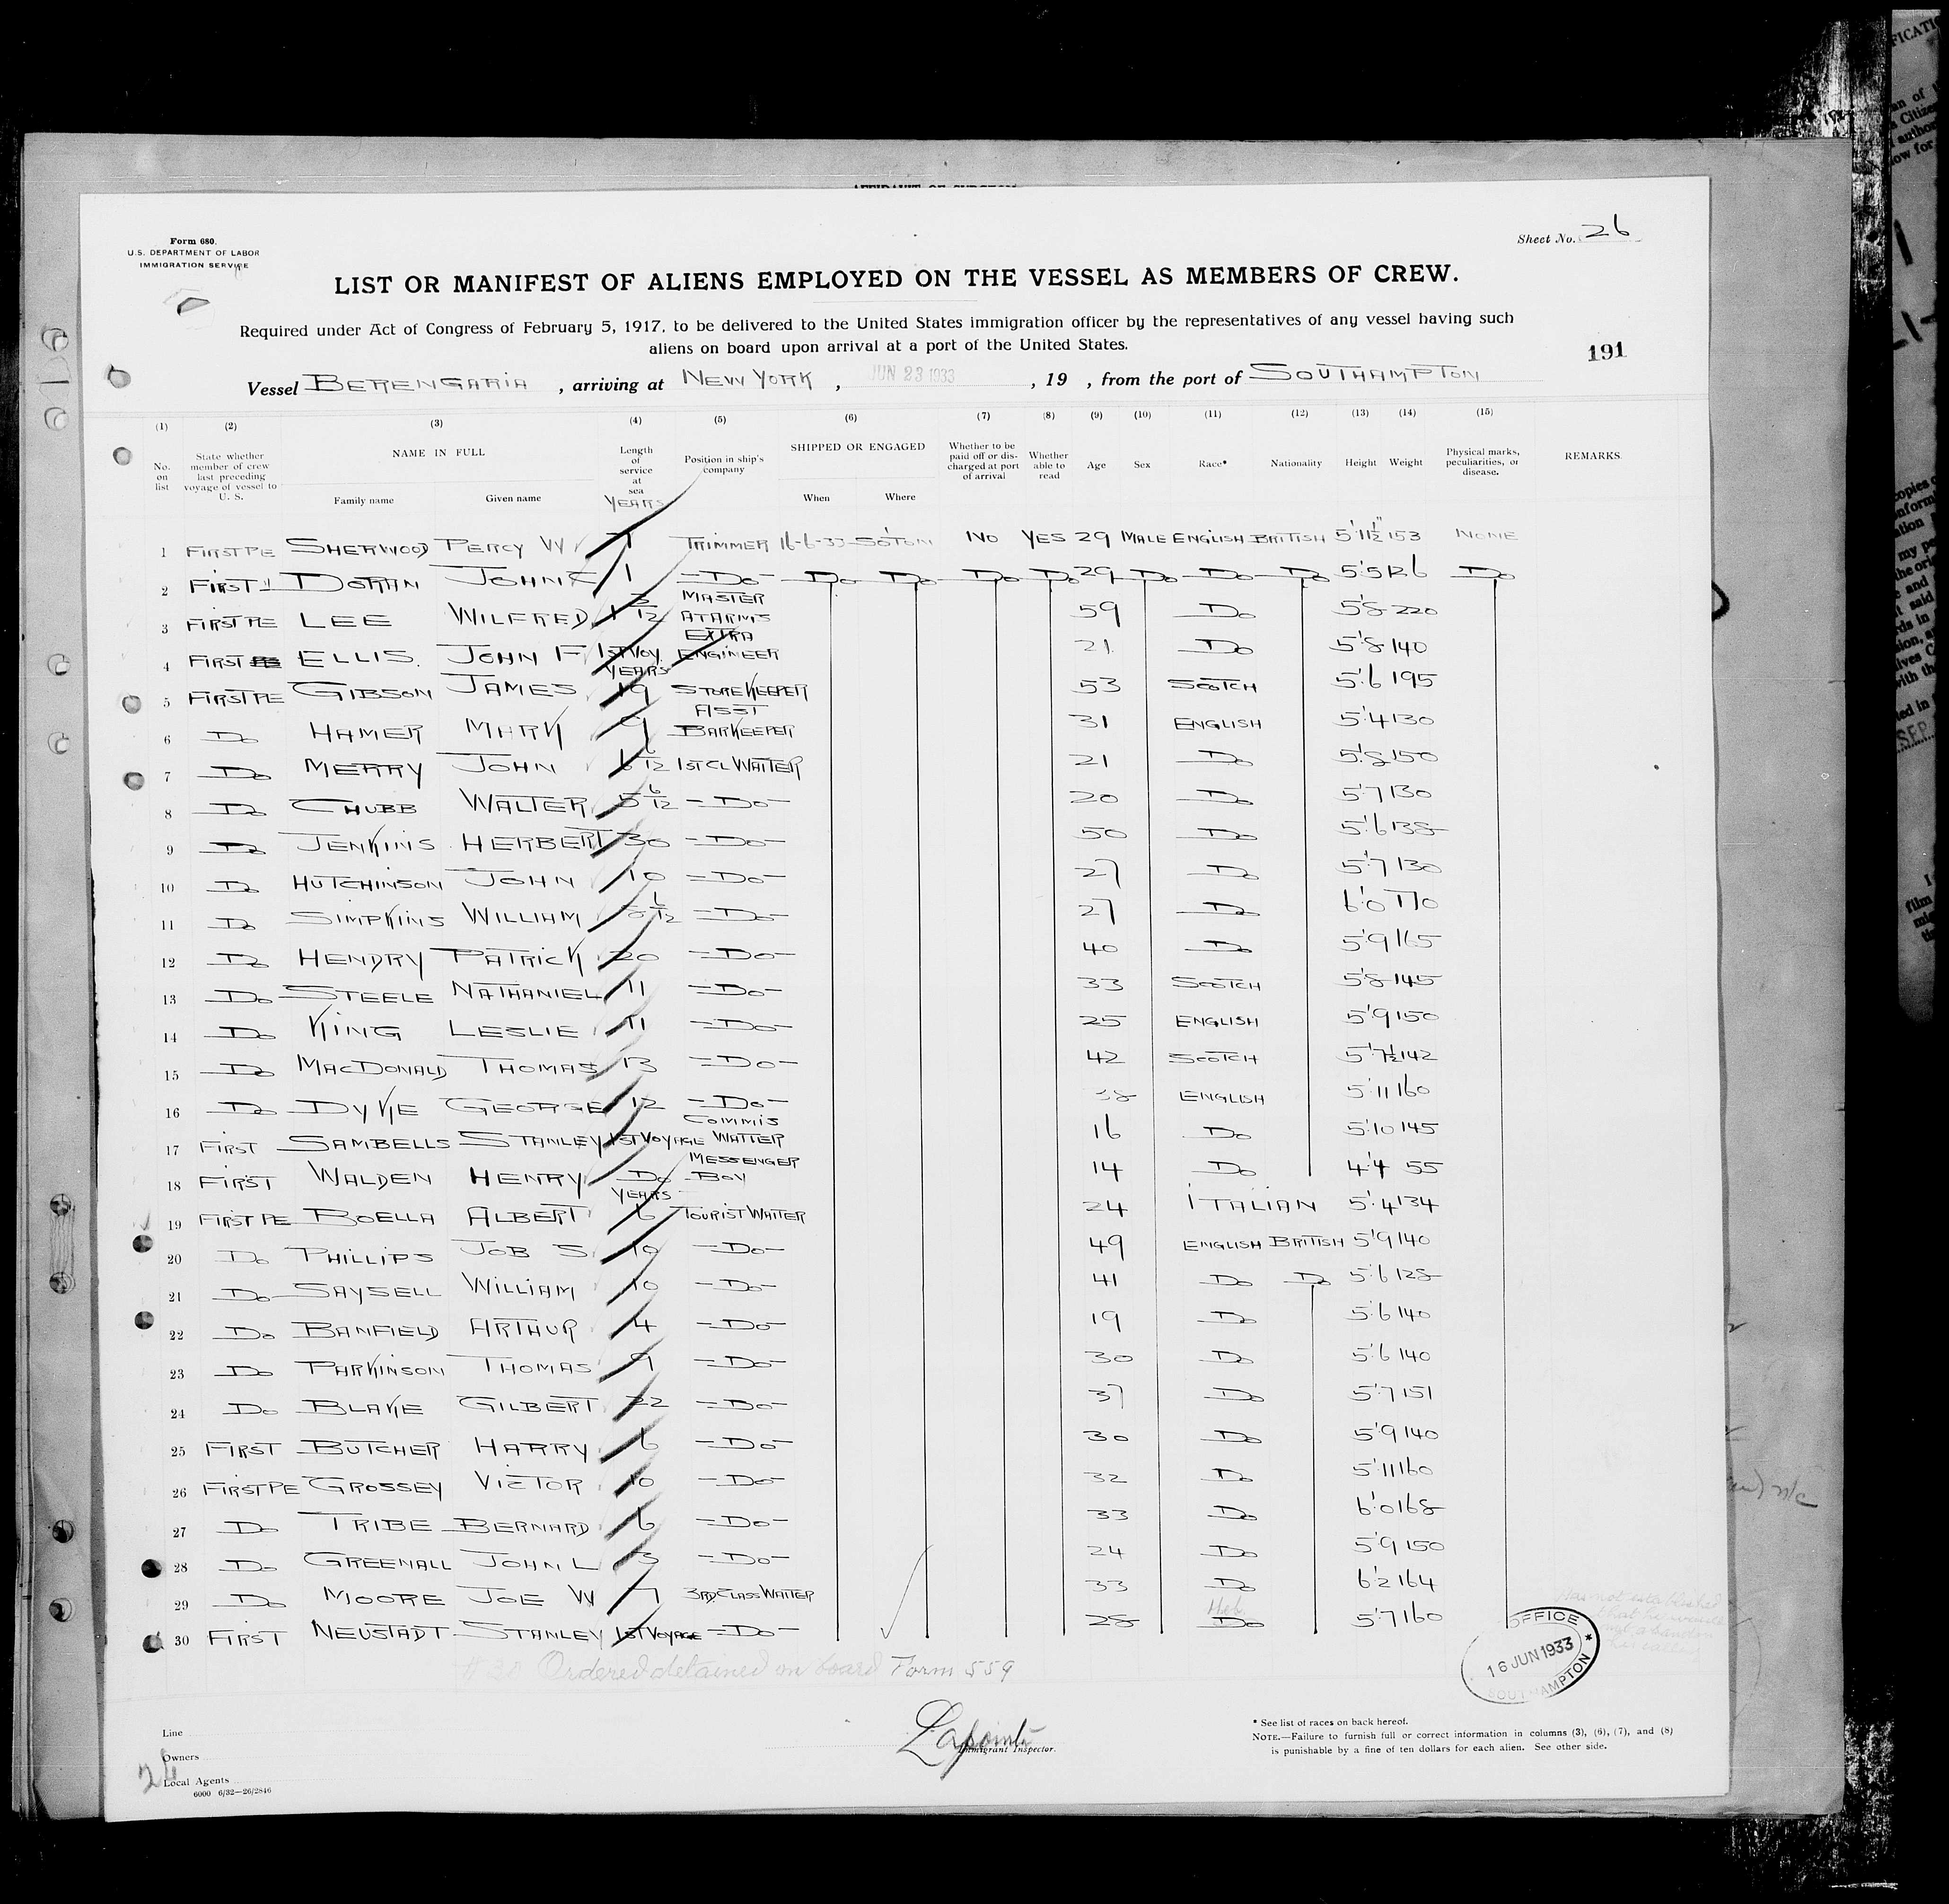 AFFIDAVIT OF SURGEON
Form 680.
U.S. DEPARTMENT OF LABOR
IMMIGRATION SERVICE
Sheet No. 26
LIST OR MANIFEST OF ALIENS EMPLOYED ON THE VESSEL AS MEMBERS OF CREW.
Required under Act of Congress of February 5, 1917, to be delivered to the United States immigration officer by the representatives of any vessel having such
aliens on board upon arrival at a port of the United States.
191
Vessel BERENGARIA , arriving at NEW YORK , JUN 23 1933 , 19 , from the port of SOUTHAMPTON
(1) (2) (3) (4) (5) (6) (7) (8) (9) (10) (11) (12) (13) (14) (15)
No. on list State whether member of crew last preceding voyage of vessel to U. S. NAME IN FULL Family name Given name Length of service at sea YEARS Position in ship's company SHIPPED OR ENGAGED When Where Whether to be paid off or discharged at port of arrival Whether able to read Age Sex Race* Nationality Height Weight Physical marks, peculiarities, or disease. REMARKS.
1 FIRST PE SHERWOOD PERCY W 7 TRIMMER 16-6-33 SOTON NO YES 29 MALE ENGLISH BRITISH 5'11½" 153 NONE
2 FIRST DORAN JOHN 1 -DO- DO DO DO DO 29 DO DO DO 5'5 126 DO
3 FIRST PE LEE WILFRED 1 3/12 MASTER AT ARMS 59 DO 5'8 220
4 FIRST ELLIS. JOHN F 1ST VOY EXTRA ENGINEER 21 DO 5'8 140
5 FIRST PE GIBSON JAMES YEARS 19 STOREKEEPER 53 SCOTCH 5'6 195
6 DO HAMER MARK 9 ASST BARKEEPER 31 ENGLISH 5'4 130
7 DO MERRY JOHN 6 6/12 1ST CL WAITER 21 DO 5'8 150
8 DO CHUBB WALTER 5 6/12 -DO- 20 DO 5'7 130
9 DO JENKINS HERBERT 30 -DO- 50 DO 5'6 138
10 DO HUTCHINSON JOHN 10 -DO- 27 DO 5'7 130
11 DO SIMPKINS WILLIAM 6/12 -DO- 27 DO 6'0 170
12 DO HENDRY PATRICK 20 -DO- 40 DO 5'9 165
13 DO STEELE NATHANIEL 11 -DO- 33 SCOTCH 5'8 145
14 DO KING LESLIE 11 -DO- 25 ENGLISH 5'9 150
15 DO MACDONALD THOMAS 13 -DO- 42 SCOTCH 5'7½ 142
16 DO DYKE GEORGE 12 -DO- 38 ENGLISH 5'11 160
17 FIRST SAMBELLS STANLEY 1ST VOYAGE COMMIS WAITER 16 DO 5'10 145
18 FIRST WALDEN HENRY DO MESSENGER BOY 14 DO 4'4 55
19 FIRST PE BOELLA ALBERT YEARS 6 TOURIST WAITER 24 ITALIAN 5'4 134
20 DO PHILLIPS JOB S. 19 -DO- 49 ENGLISH BRITISH 5'9 140
21 DO SAYSELL WILLIAM 10 -DO- 41 DO DO 5'6 128
22 DO BANFIELD ARTHUR 4 -DO- 19 DO 5'6 140
23 DO PARKINSON THOMAS 9 -DO- 30 DO 5'6 140
24 DO BLAKE GILBERT 22 -DO- 37 DO 5'7 151
25 FIRST BUTCHER HARRY 6 -DO- 30 DO 5'9 140
26 FIRST PE GROSSEY VICTOR 10 -DO- 32 DO 5'11 160
27 DO TRIBE BERNARD 6 -DO- 33 DO 6'0 168
28 DO GREENALL JOHN L 3 -DO- 24 DO 5'9 150
29 DO MOORE JOE W 7 3RD CLASS WAITER 33 DO 6'2 164
30 FIRST NEUSTADT STANLEY 1ST VOYAGE -DO- 28 Heb. DO 5'7 160
Has not established that he would
# 30 Ordered detained on board Form 559
OFFICE
16 JUN 1933
SOUTHAMPTON
Line
Owners
Local Agents
26
6000 6/32-26/2846
Lapointe
Immigrant Inspector.
* See list of races on back hereof.
NOTE.—Failure to furnish full or correct information in columns (3), (6), (7), and (8)
is punishable by a fine of ten dollars for each alien. See other side.